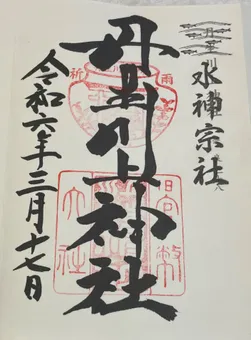 水神宗社
丹生川上神社
祈雨
官幣
大社
令和六年三月十七日